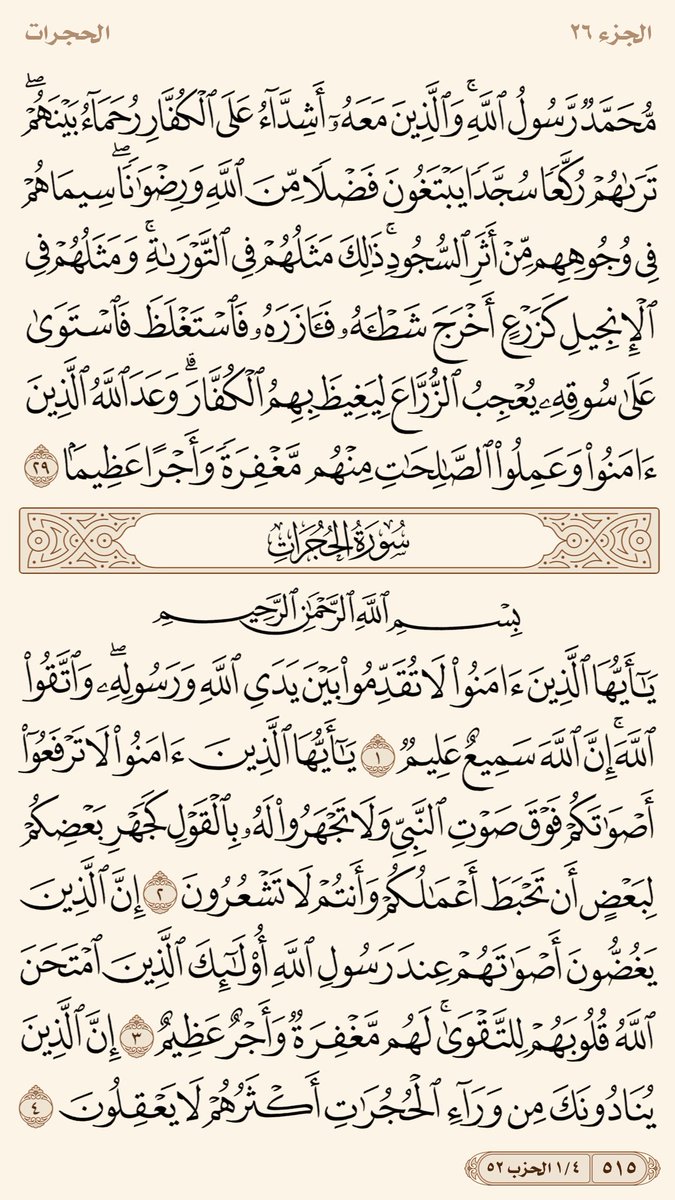 الجزء ٢٦
الحجرات
مُّحَمَّدٌ رَّسُولُ ٱللَّهِۚ وَٱلَّذِينَ مَعَهُۥٓ أَشِدَّآءُ عَلَى ٱلْكُفَّارِ رُحَمَآءُ بَيْنَهُمْۖ
تَرَىٰهُمْ رُكَّعًا سُجَّدًا يَبْتَغُونَ فَضْلًا مِّنَ ٱللَّهِ وَرِضْوَٰنًاۖ سِيمَاهُمْ
فِى وُجُوهِهِم مِّنْ أَثَرِ ٱلسُّجُودِۚ ذَٰلِكَ مَثَلُهُمْ فِى ٱلتَّوْرَىٰةِۚ وَمَثَلُهُمْ فِى
ٱلْإِنجِيلِ كَزَرْعٍ أَخْرَجَ شَطْـَٔهُۥ فَـَٔازَرَهُۥ فَٱسْتَغْلَظَ فَٱسْتَوَىٰ
عَلَىٰ سُوقِهِۦ يُعْجِبُ ٱلزُّرَّاعَ لِيَغِيظَ بِهِمُ ٱلْكُفَّارَۗ وَعَدَ ٱللَّهُ ٱلَّذِينَ
ءَامَنُوا۟ وَعَمِلُوا۟ ٱلصَّٰلِحَٰتِ مِنْهُم مَّغْفِرَةً وَأَجْرًا عَظِيمًۢا ٢٩
سُورَةُ الْحُجُرَاتِ
بِسْمِ ٱللَّهِ ٱلرَّحْمَٰنِ ٱلرَّحِيمِ
يَٰٓأَيُّهَا ٱلَّذِينَ ءَامَنُوا۟ لَا تُقَدِّمُوا۟ بَيْنَ يَدَىِ ٱللَّهِ وَرَسُولِهِۦۖ وَٱتَّقُوا۟
ٱللَّهَۚ إِنَّ ٱللَّهَ سَمِيعٌ عَلِيمٌ ١ يَٰٓأَيُّهَا ٱلَّذِينَ ءَامَنُوا۟ لَا تَرْفَعُوٓا۟
أَصْوَٰتَكُمْ فَوْقَ صَوْتِ ٱلنَّبِىِّ وَلَا تَجْهَرُوا۟ لَهُۥ بِٱلْقَوْلِ كَجَهْرِ بَعْضِكُمْ
لِبَعْضٍ أَن تَحْبَطَ أَعْمَٰلُكُمْ وَأَنتُمْ لَا تَشْعُرُونَ ٢ إِنَّ ٱلَّذِينَ
يَغُضُّونَ أَصْوَٰتَهُمْ عِندَ رَسُولِ ٱللَّهِ أُو۟لَٰٓئِكَ ٱلَّذِينَ ٱمْتَحَنَ
ٱللَّهُ قُلُوبَهُمْ لِلتَّقْوَىٰۚ لَهُم مَّغْفِرَةٌ وَأَجْرٌ عَظِيمٌ ٣ إِنَّ ٱلَّذِينَ
يُنَادُونَكَ مِن وَرَآءِ ٱلْحُجُرَٰتِ أَكْثَرُهُمْ لَا يَعْقِلُونَ ٤
٥١٥ ١/٤ الحزب ٥٢